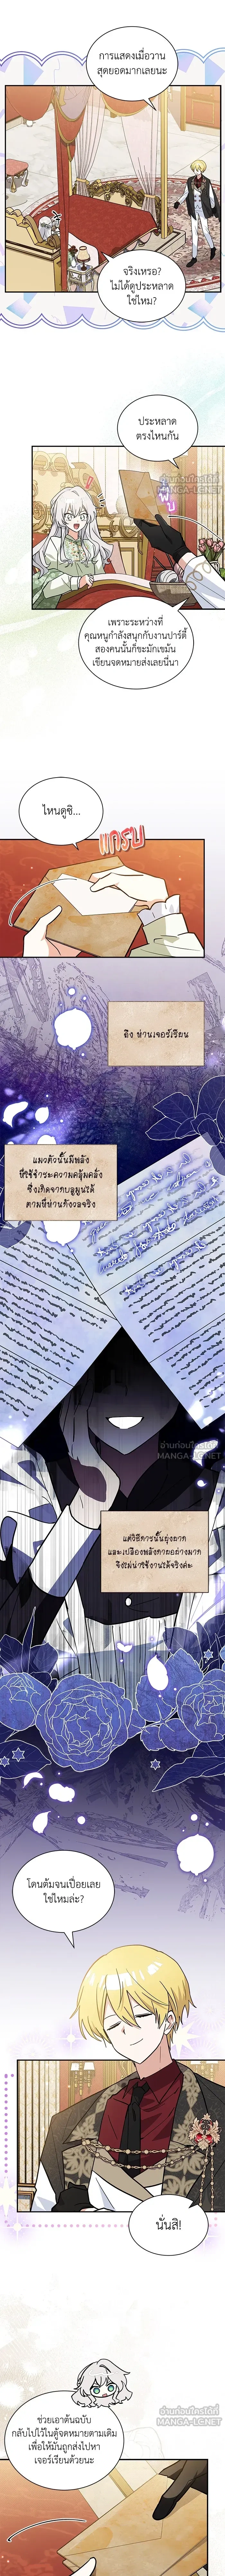 การแสดงเมื่อวาน
สุดยอดมากเลยนะ
จริงเหรอ?
ไม่ได้ดูประหลาด
ใช่ไหม?
ประหลาด
ตรงไหนกัน
อ่านก่อนใครได้ที่
MANGA-LC.NET
พึ่บ
เพราะระหว่างที่
คุณหนูกำลังสนุกกับงานปาร์ตี้
สองคนนั้นก็ขะมักเขม้น
เขียนจดหมายส่งเลยนี่นา
ไหนดูซิ...
แกรบ
ถึง ท่านเจอร์เรียน
แมวตัวนั้นมีพลัง
ที่ใช้ชำระความคลุ้มคลั่ง
ซึ่งเกิดจากบลูมูนได้
ตามที่ท่านกังวลจริง
อ่านก่อนใครได้ที่
MANGA-LC.NET
แต่วิธีการนั้นยุ่งยาก
และเปลืองพลังกายอย่างมาก
จึงไม่น่าใช้งานได้จริงค่ะ
โดนต้มจนเปื่อยเลย
ใช่ไหมล่ะ?
นั่นสิ!
อ่านก่อนใครได้ที่
MANGA-LC.NET
ช่วยเอาต้นฉบับ
กลับไปไว้ในตู้จดหมายตามเดิม
เพื่อให้มันถูกส่งไปหา
เจอร์เรียนด้วยนะ